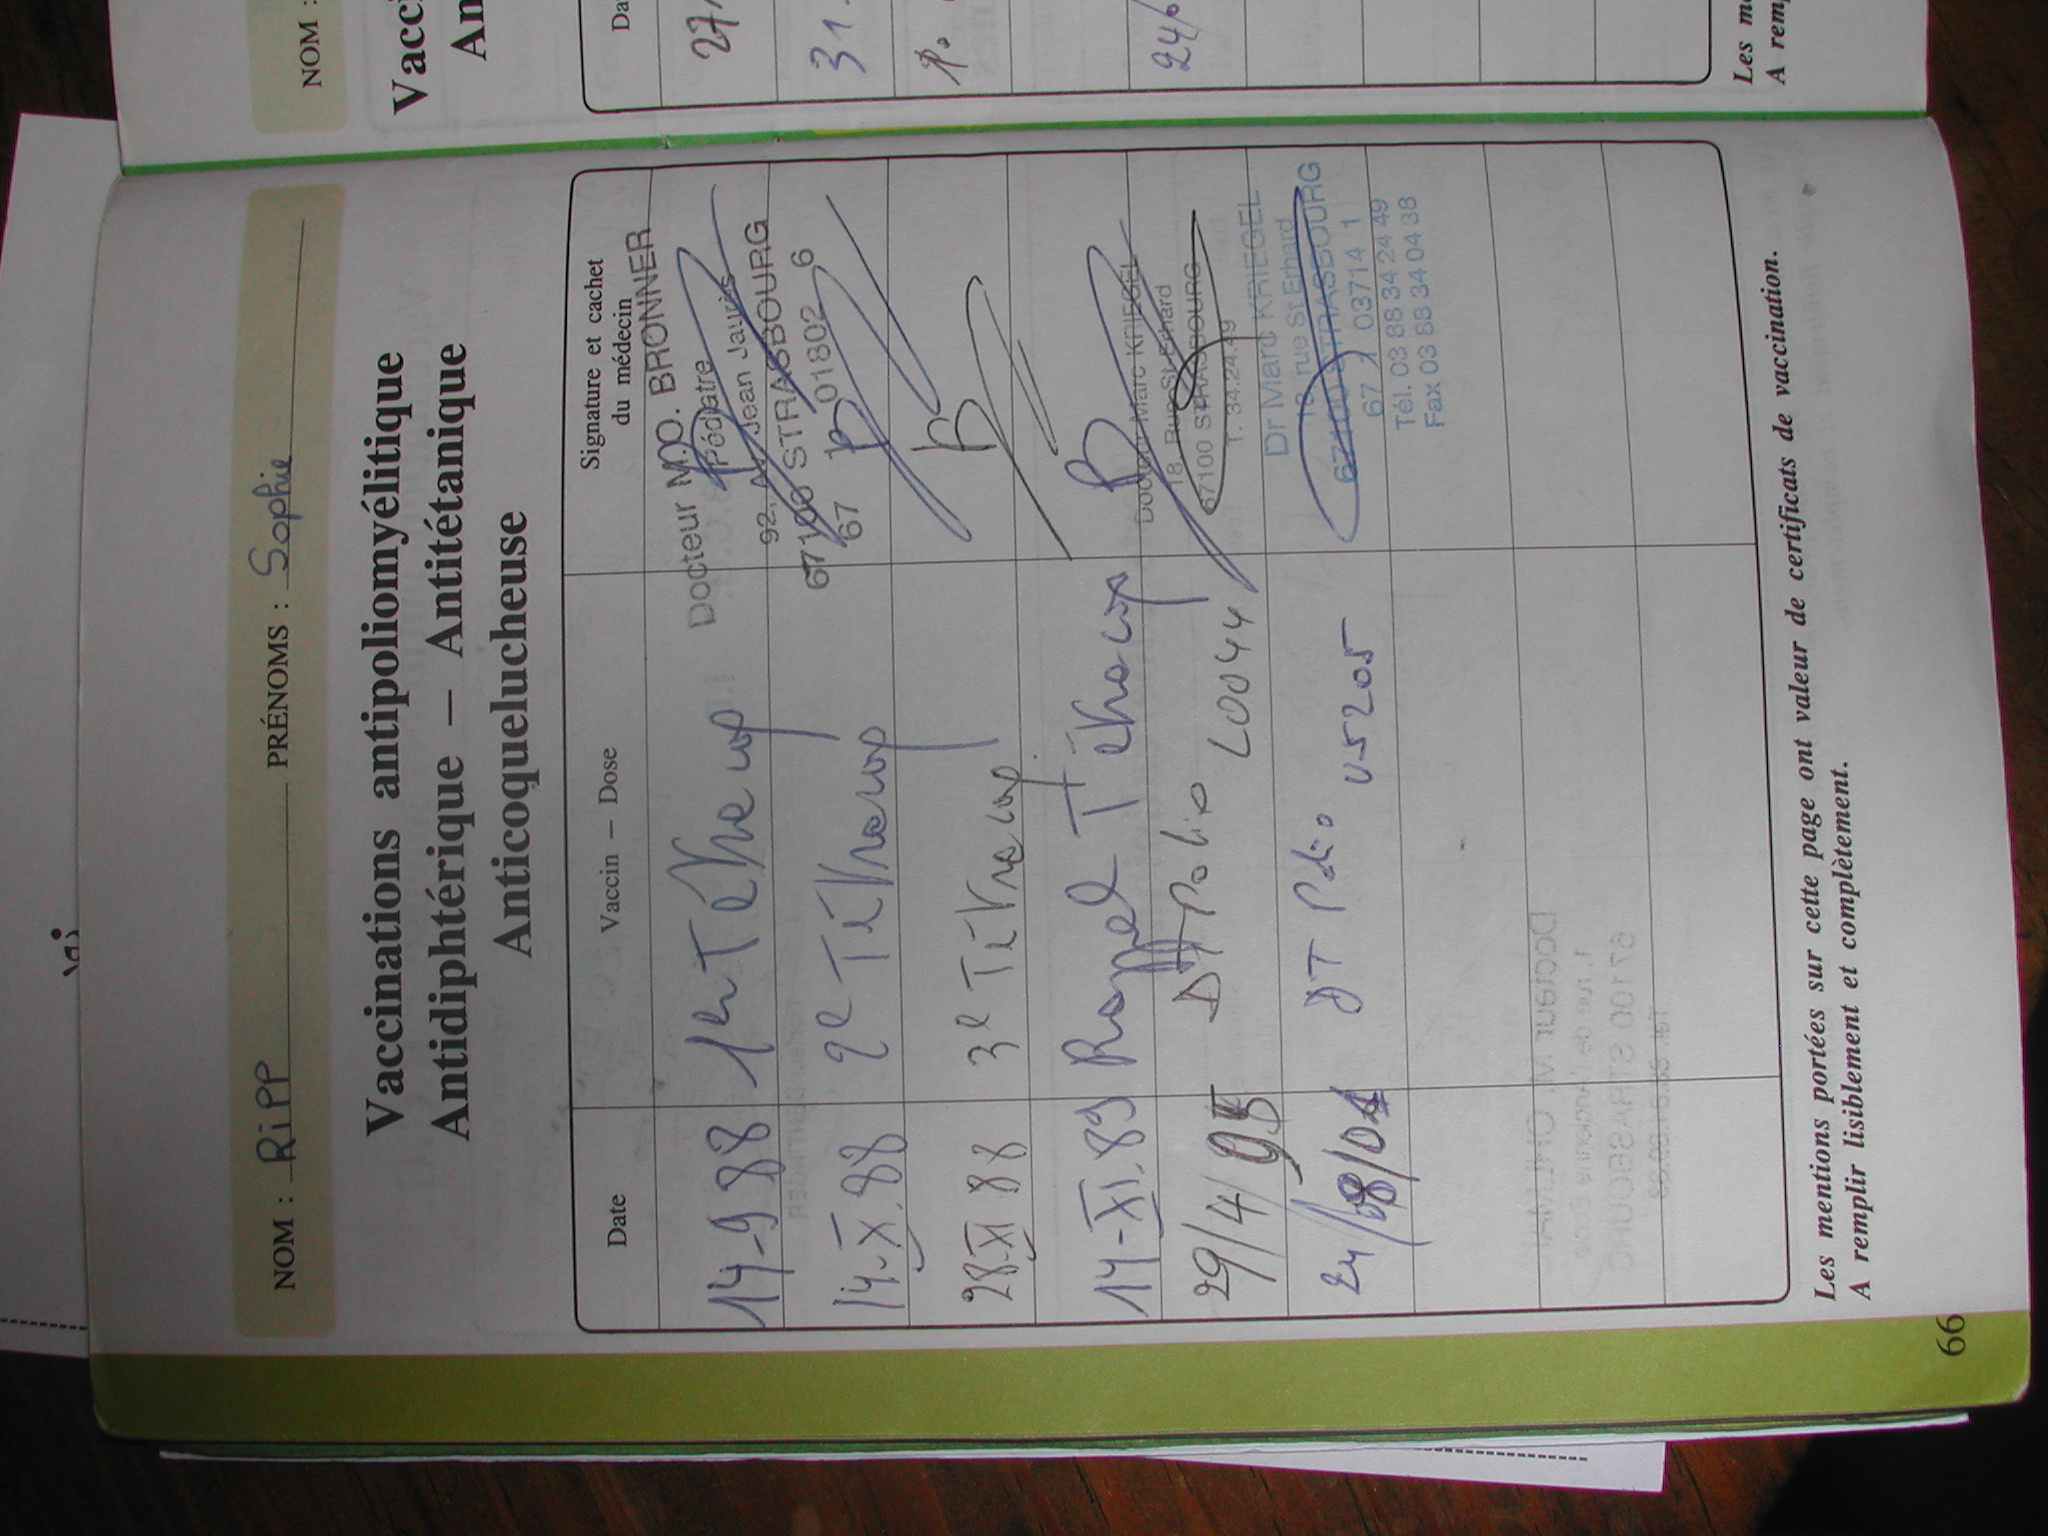 NOM : RiPP PRÉNOMS : Sophie
Vaccinations antipoliomyélitique
Antidiphtérique – Antitétanique
Anticoquelucheuse
Date Vaccin – Dose Signature et cachet
du médecin
14-9 88 1er Tétracoq
Docteur M.O. BRONNER
Pédiatre
92, Av. Jean Jaurès
67100 STRASBOURG
67 01802 6
14-X.88 2e Tétracoq
28-XI 88 3e Tétracoq
14-XI.89 Rappel Tétracoq
29/4/95 DTPolio L0044
Docteur Marc KRIEGEL
18, Rue St-Erhard
67100 STRASBOURG
T. 34.24.49
24/08/01 DT Polio U5205
Dr Marc KRIEGEL
18 rue St Erhard
67100 STRASBOURG
67 1 03714 1
Tél. 03 88 34 24 49
Fax 03 88 34 04 38
Les mentions portées sur cette page ont valeur de certificats de vaccination.
A remplir lisiblement et complètement.
66
NOM :
Vacci
An
Da
27/
31.
24/
Les me
A remp